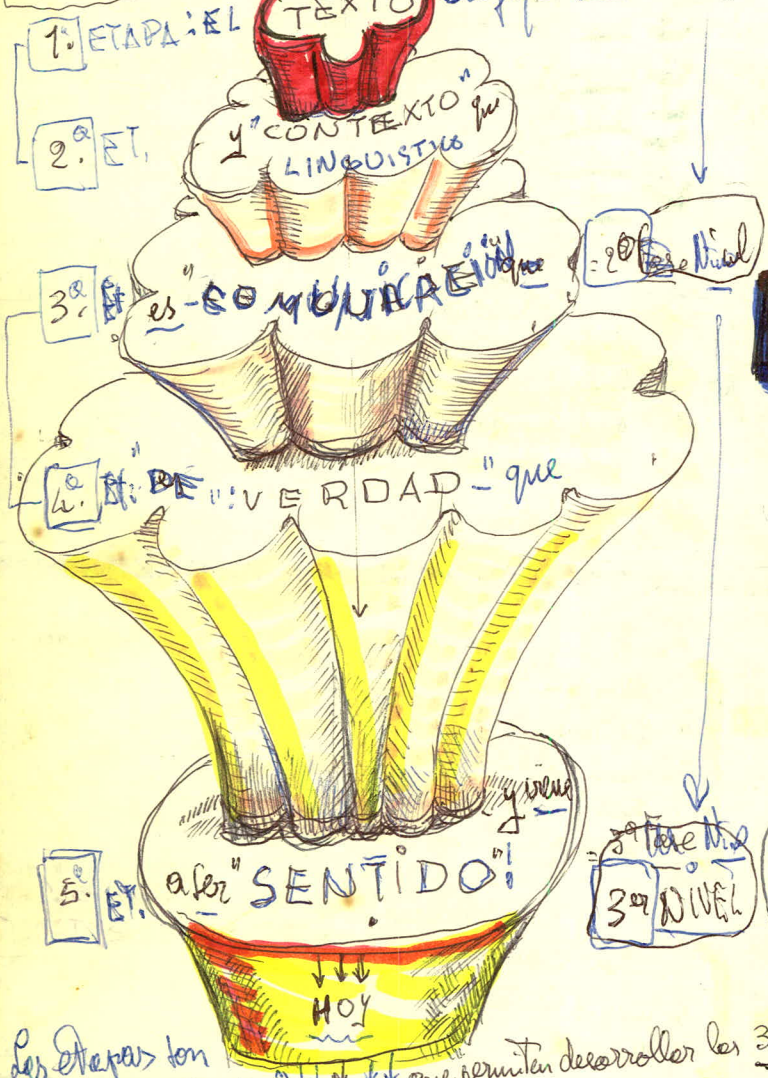 1ª ETAPA: EL TEXTO
2.ª ET. y "CONTEXTO" que
LINGUISTICO
= 2º Nivel
3ª. Et es "COMUNICACION" que
4.ª Et. "DE VERDAD" que
y viene
a ser "SENTIDO"!
5ª. ET.
3er NIVEL
HOY
Las etapas son
que permiten desarrollar los 3